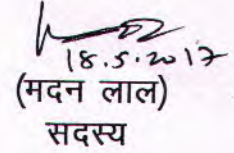 18.5.2017
(मदन लाल)
सदस्य